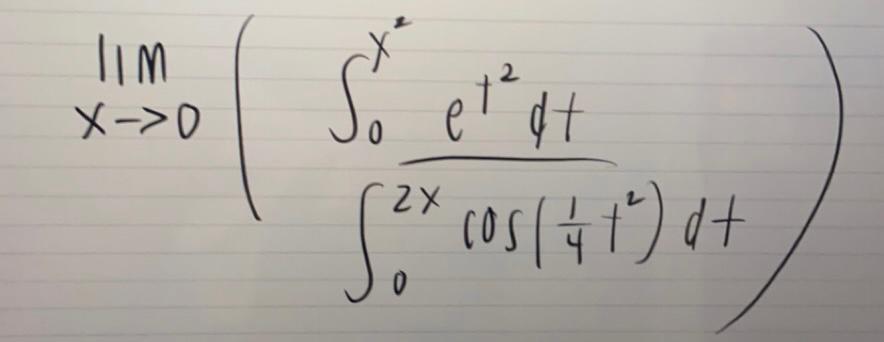 lim x->0 ( ∫₀^{x²} e^{t²} dt
/ ∫₀^{2x} cos(¼ t²) dt )